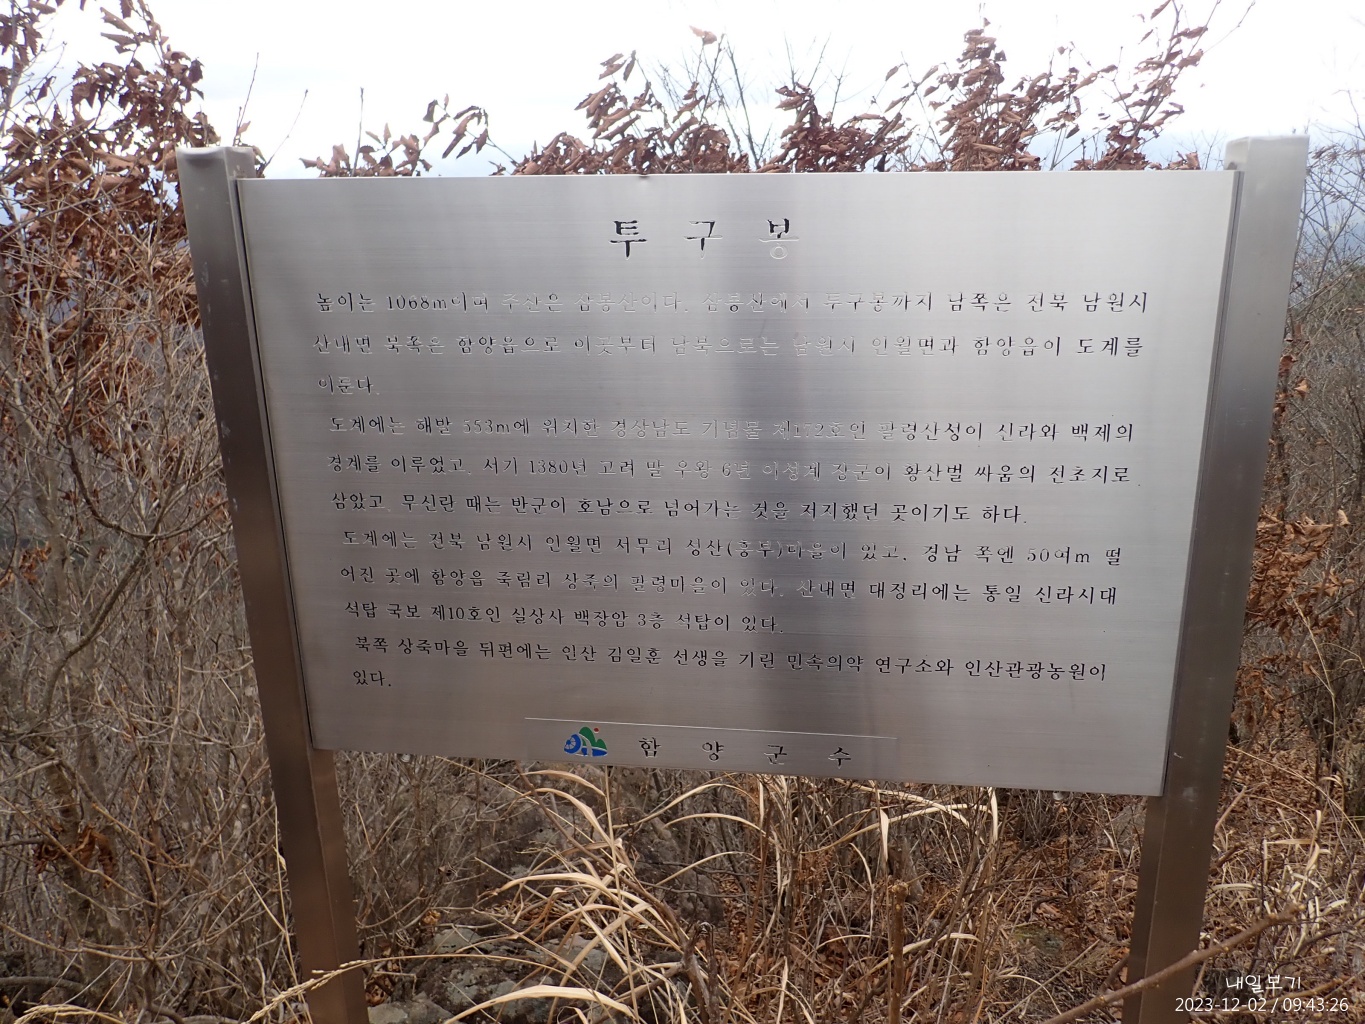 투구봉
높이는 1068m이며 주산은 삼봉산이다. 삼봉산에서 투구봉까지 남쪽은 전북 남원시
산내면 북쪽은 함양읍으로 이곳부터 남북으로는 남원시 인월면과 함양읍이 도계를
이룬다.
도계에는 해발 553m에 위치한 경상남도 기념물 제172호인 팔령산성이 신라와 백제의
경계를 이루었고, 서기 1380년 고려 말 우왕 6년 이성계 장군이 황산벌 싸움의 전초지로
삼았고, 무신란 때는 반군이 호남으로 넘어가는 것을 저지했던 곳이기도 하다.
도계에는 전북 남원시 인월면 서무리 성산(흥부)마을이 있고, 경남 쪽엔 50여m 떨
어진 곳에 함양읍 죽림리 상죽의 팔령마을이 있다. 산내면 대정리에는 통일 신라시대
석탑 국보 제10호인 실상사 백장암 3층 석탑이 있다.
북쪽 상죽마을 뒤편에는 인산 김일훈 선생을 기린 민속의약 연구소와 인산관광농원이
있다.
함양군수
내일보기
2023-12-02 / 09:43:26